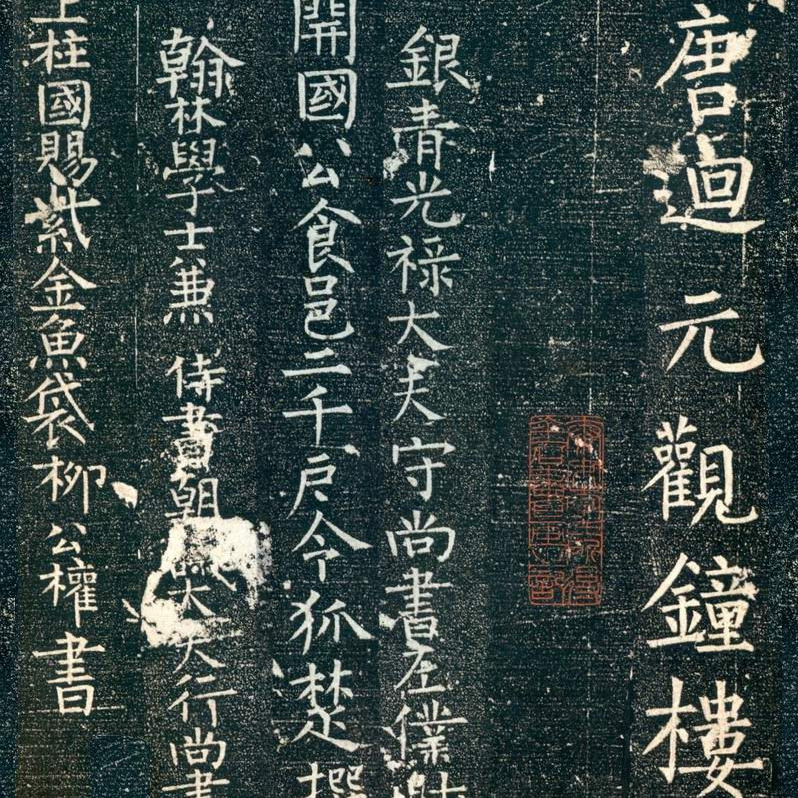 唐迴元觀鐘樓
銀青光祿大夫守尚書左僕射
開國公食邑二千戶令狐楚撰
翰林學士兼侍書朝議大夫行尚書
上柱國賜紫金魚袋柳公權書